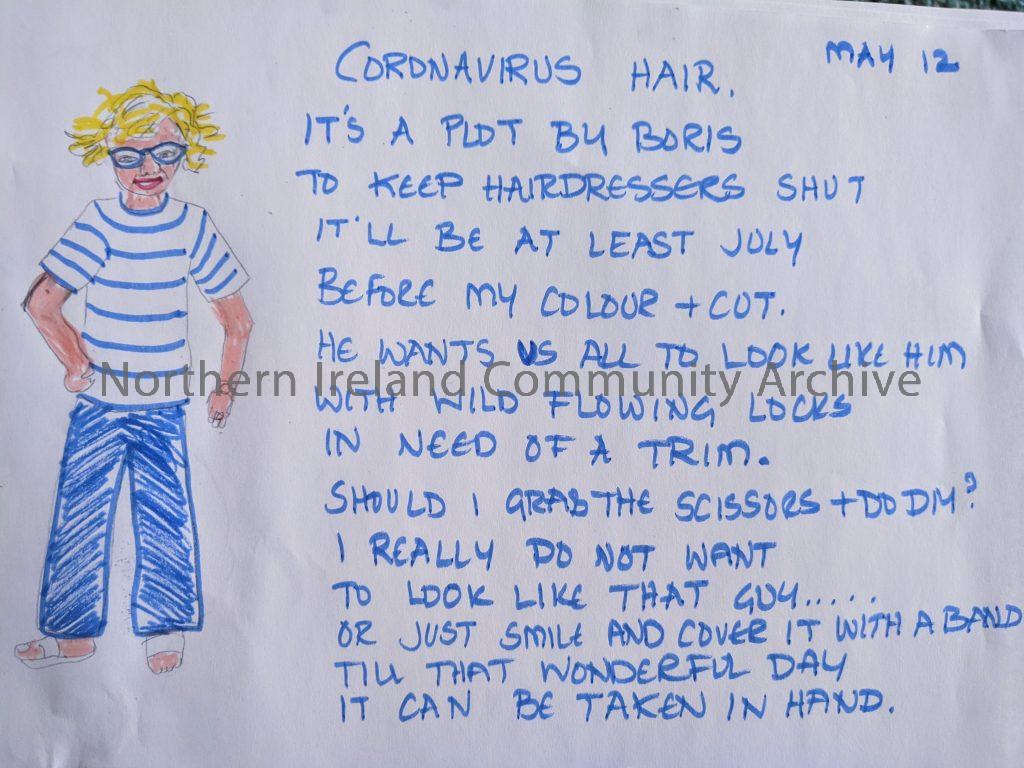 CORONAVIRUS HAIR.
MAY 12
IT'S A PLOT BY BORIS
TO KEEP HAIRDRESSERS SHUT
IT'LL BE AT LEAST JULY
BEFORE MY COLOUR + CUT.
HE WANTS US ALL TO LOOK LIKE HIM
Northern Ireland Community Archive
WITH WILD FLOWING LOCKS
IN NEED OF A TRIM.
SHOULD I GRAB THE SCISSORS + DO DIY?
I REALLY DO NOT WANT
TO LOOK LIKE THAT GUY.....
OR JUST SMILE AND COVER IT WITH A BAND
TILL THAT WONDERFUL DAY
IT CAN BE TAKEN IN HAND.